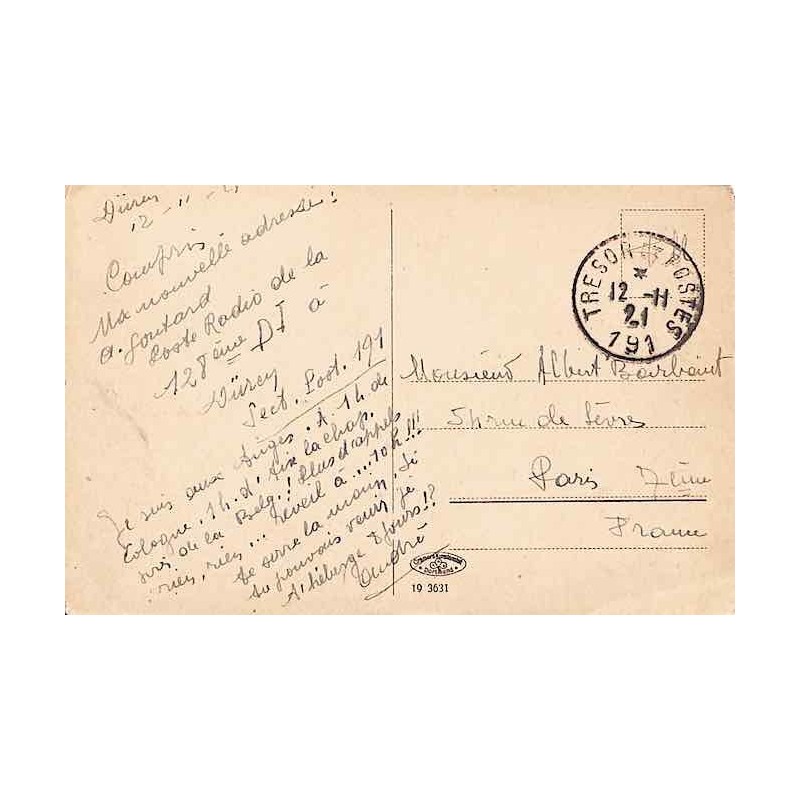 Düren
12-11-21
Compris
Ma nouvelle adresse!
A. Goutard
Poste Radio de la
128ème DI à
Düren
Sect. Post. 191
Je suis aux Anges. A 1h. de
Cologne, 1h. d'Aix la chap.
de la Belg.! Plus d'appels
rien, rien... réveil à...10h!!!
Je serre la main. Si
tu pouvais venir, je
t'héberge 8 jours!?
André
TRESOR ET POSTES
*
12 -11
21
191
Monsieur Albert
rue de Sèvres
Paris 7ème
France
DORTMUND
19 3631